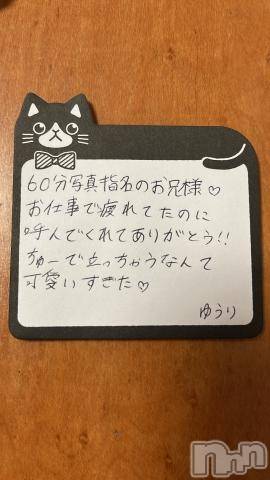 60分写真指名のお兄様♡
お仕事で疲れてたのに
呼んでくれてありがとう!!
ちゅーで立っちゃうなんて
可愛いすぎた♡
ゆうり
Nightnavi